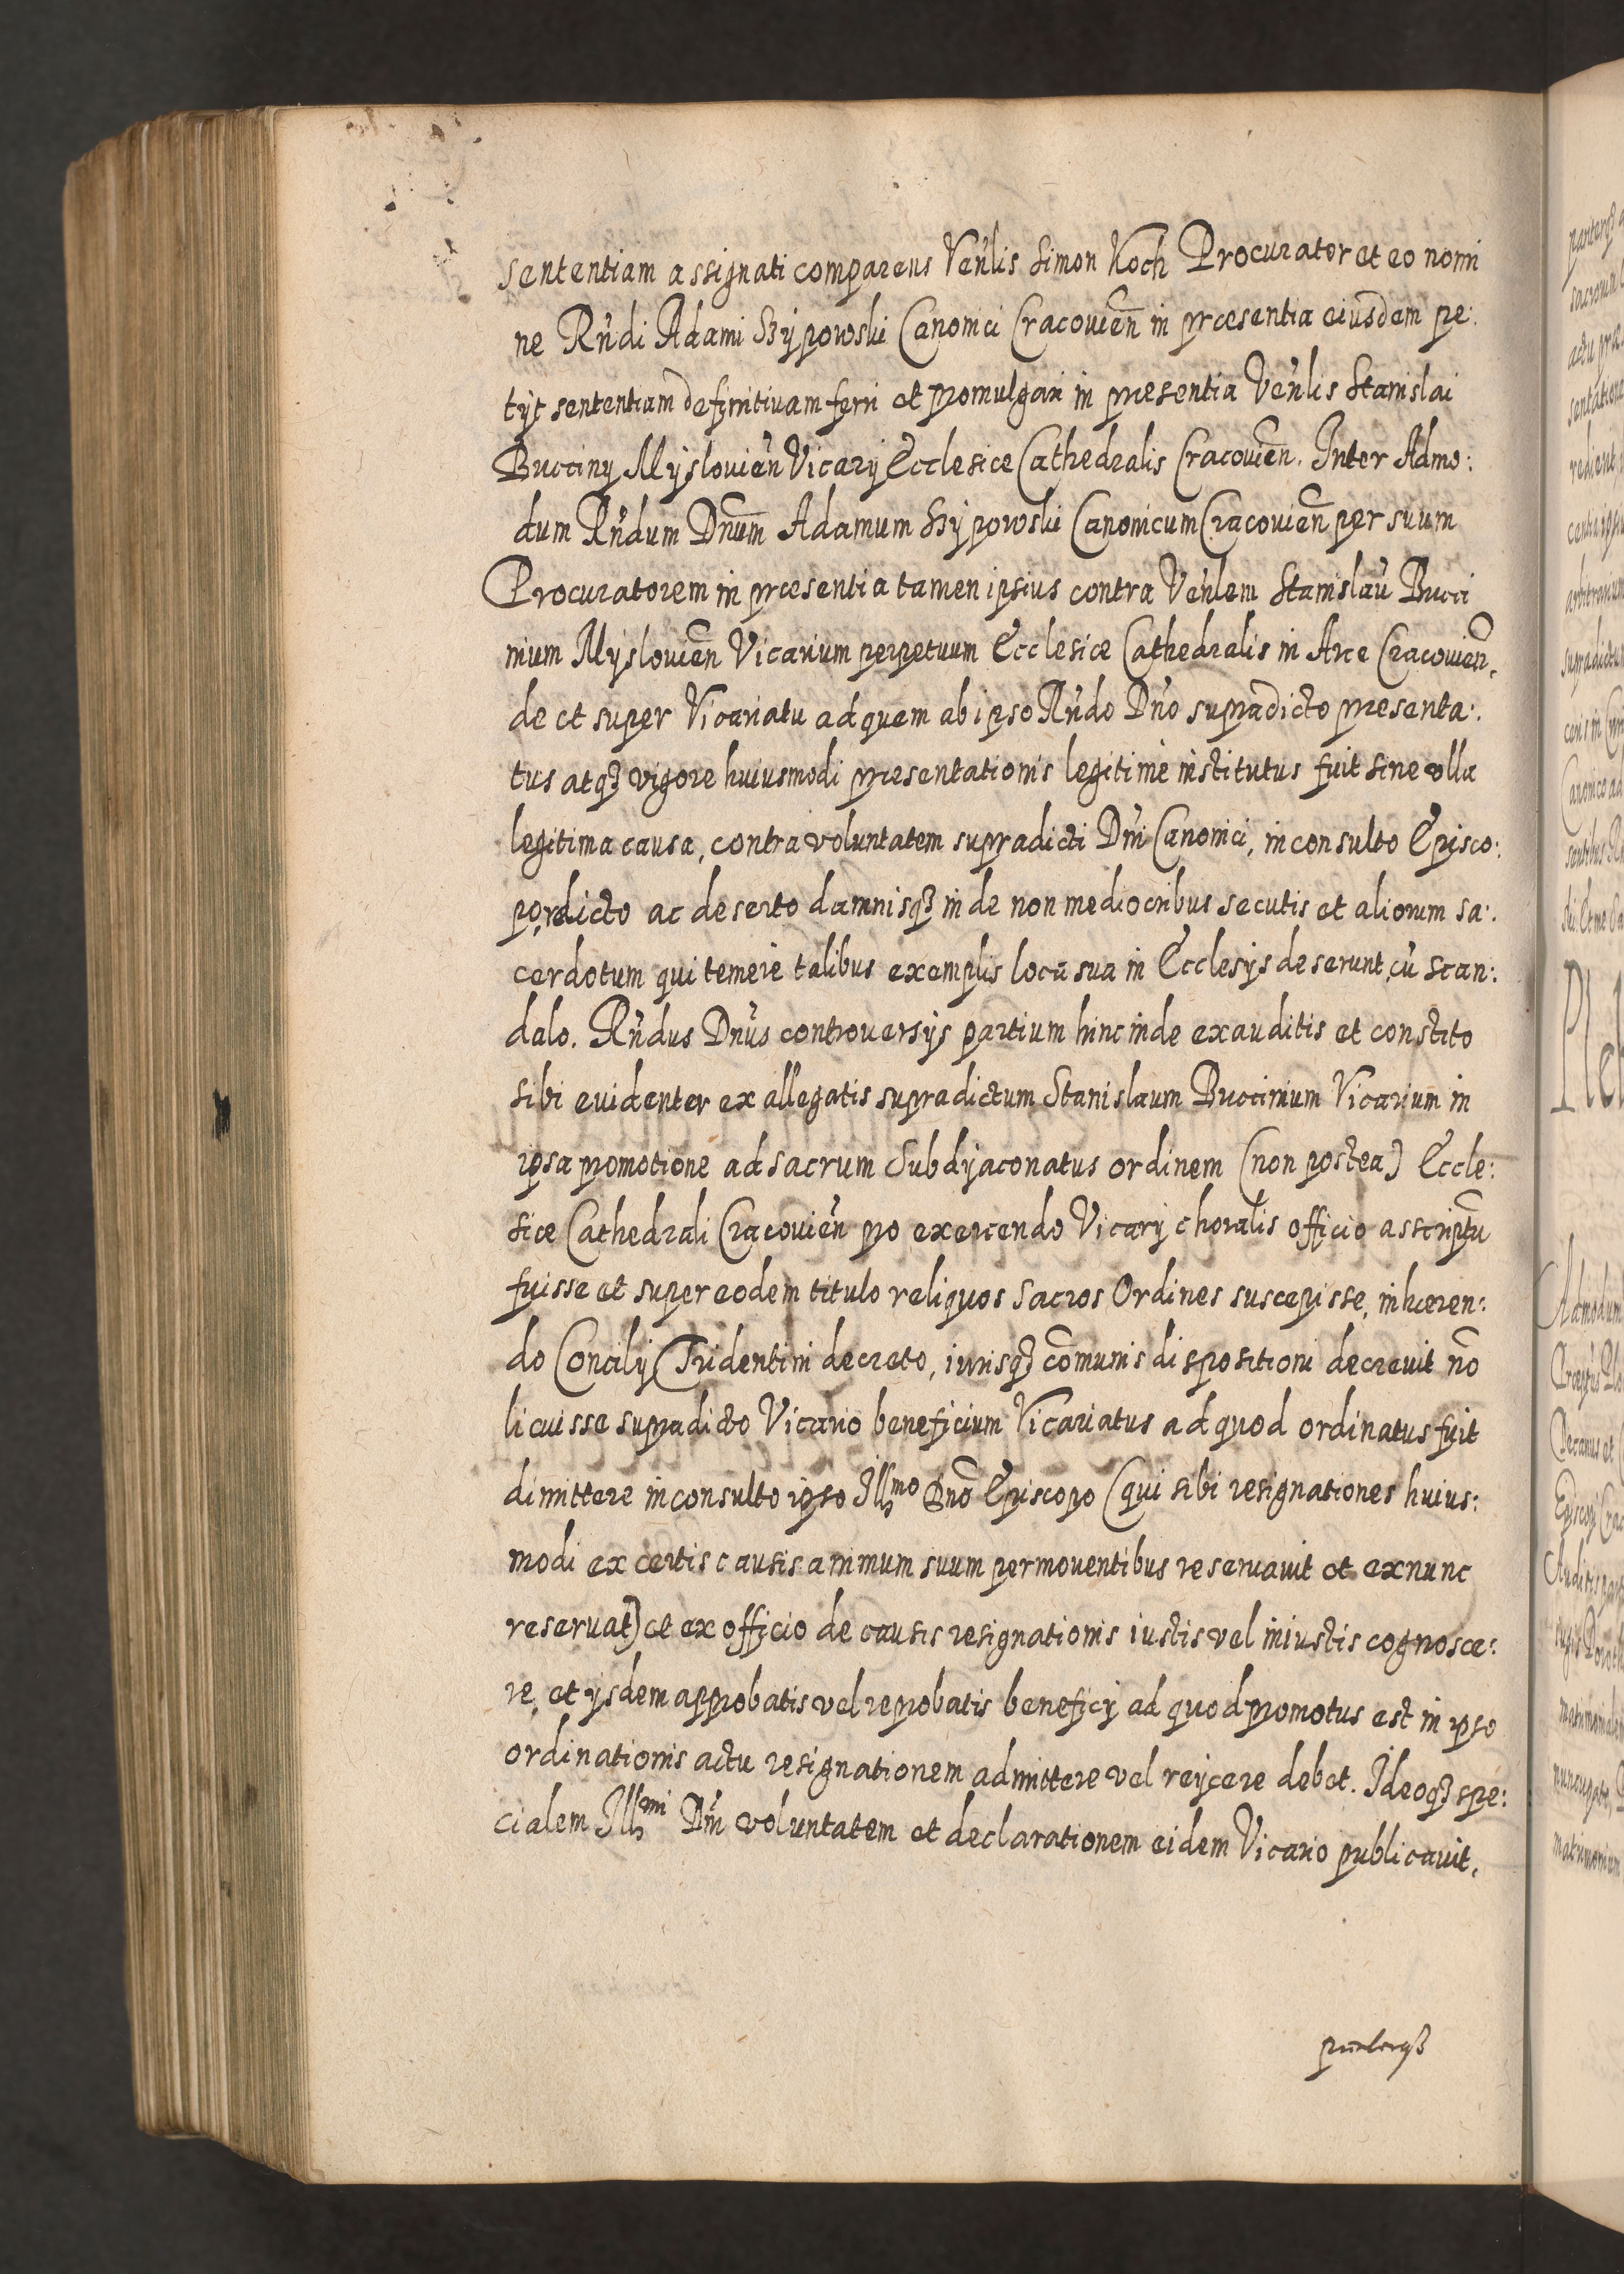 sententiam assignati comparens Venlis Simon Koch Procurator et eo nomi
ne Rndi Adami Szÿpowski Canonici Cracovien in præsentia eiusdem pe:
tÿt sententiam definitivam ferri et promulgari in præsentia Venlis Stanislai
Bucciny Mÿslovien Vicarÿ Ecclesiæ Cathedralis Cracovien. Inter Admo:
dum Rndum Dnum Adamum Szÿpowski Canonicum Cracovien per suum
Procuratorem in præsentia tamen ipsius contra Venlem Stanislaū Bucci
nium Mÿslovien Vicarium perpetuum Ecclesiæ Cathedralis in Arce Cracovien,
de et super Vicariatu ad quem ab ipso Rndo Dno supradicto præsenta:
tus atqꝫ vigore huiusmodi præsentationis legitime institutus fuit sine ulla
legitima causa, contra voluntatem supradicti Dni Canonici, inconsulto Episco:
po, relicto ac deserto damnisqꝫ inde non mediocribus secutis et aliorum sa:
cerdotum qui temere talibus exemplis loca sua in Ecclesÿs deserunt, cū scan:
dalo. Rndus Dnus controversÿs partium hinc inde exauditis et constito
sibi evidenter ex allegatis supradictum Stanislaum Buccinium Vicarium in
ipsa promotione ad sacrum Subdÿaconatus ordinem (non postea) Eccle:
siæ Cathedrali Cracovien pro exercendo Vicarÿ choralis officio asscriptū
fuisse et super eodem titulo reliquos Sacros Ordines suscepisse, inhæren:
do Concilÿ Tridentini decreto, iurisqꝫ cōmunis dispositioni decrevit nō
licuisse supradicto Vicario beneficium Vicariatus ad quod ordinatus fuit
dimittere inconsulto ipso Illmo Dno Episcopo (qui sibi resignationes huius:
modi ex certis causis animum suum permoventibus reservavit et ex nunc
reservat) et ex officio de causis resignationis iustis vel iniustis cognosce:
re, et ÿsdem approbatis vel reprobatis beneficÿ ad quod promotus est in ipso
ordinationis actu resignationem admittere vel reÿcere debet. Ideoqꝫ spe:
cialem Illmi Dni voluntatem et declarationem eidem Vicario publicavit,